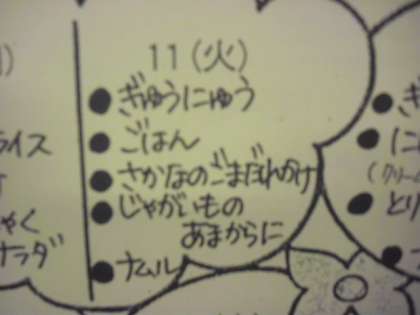 11(火)
ぎゅうにゅう
ごはん
さかなのごまだれかけ
じゃがいもの
あまからに
ナムル
ライス
ゃく
サラダ
ぎ
に
(クリーム
とり